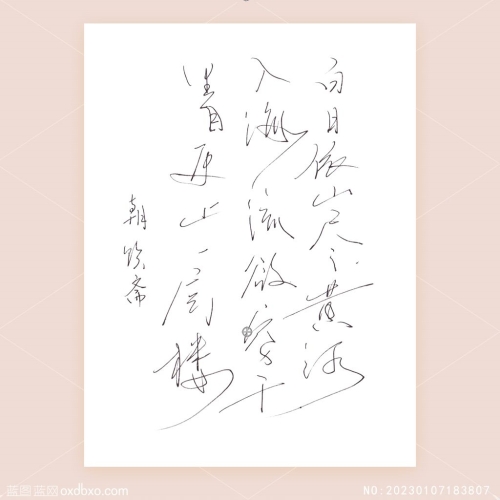 白日依山尽黄河
入海流欲穷千
里目更上一层楼
朝斋
oxdbxo.com
NO:20230107163807